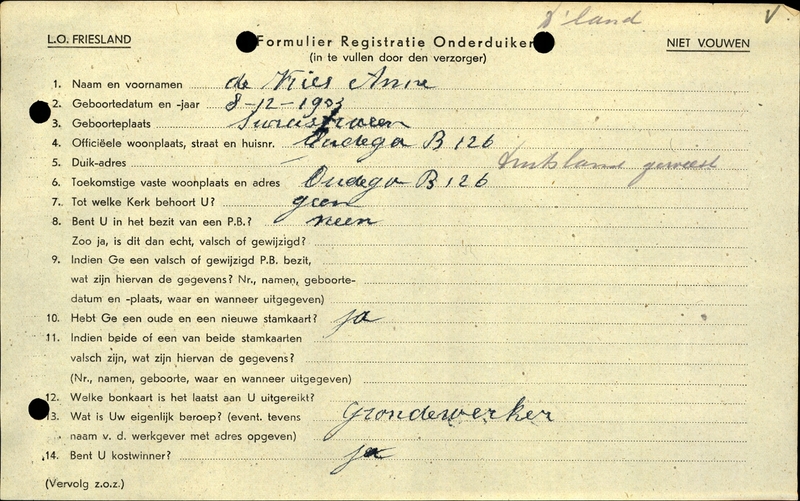 D'land
L.O. FRIESLAND
Formulier Registratie Onderduiker
NIET VOUWEN
(in te vullen door den verzorger)
1. Naam en voornamen de Vries Anne
2. Geboortedatum en -jaar 8-12-1903
3. Geboorteplaats
4. Officiëele woonplaats, straat en huisnr. Oudega B 126
5. Duik-adres Duitsland geweest
6. Toekomstige vaste woonplaats en adres Oudega B 126
7. Tot welke Kerk behoort U? geen
8. Bent U in het bezit van een P.B.? neen
Zoo ja, is dit dan echt, valsch of gewijzigd?
9. Indien Ge een valsch of gewijzigd P.B. bezit,
wat zijn hiervan de gegevens? Nr., namen, geboorte-
datum en -plaats, waar en wanneer uitgegeven)
10. Hebt Ge een oude en een nieuwe stamkaart? ja
11. Indien beide of een van beide stamkaarten
valsch zijn, wat zijn hiervan de gegevens?
(Nr., namen, geboorte, waar en wanneer uitgegeven)
12. Welke bonkaart is het laatst aan U uitgereikt?
13. Wat is Uw eigenlijk beroep? (event. tevens Grondewerker
naam v. d. werkgever met adres opgeven)
14. Bent U kostwinner? ja
(Vervolg z.o.z.)